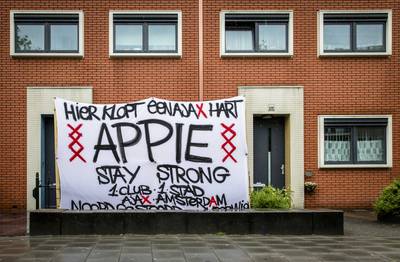 HIER KLOPT ÉÉN AJAX HART
XXX APPIE XXX
STAY STRONG
1 CLUB · 1 STAD
AJAX · AMSTERDAM